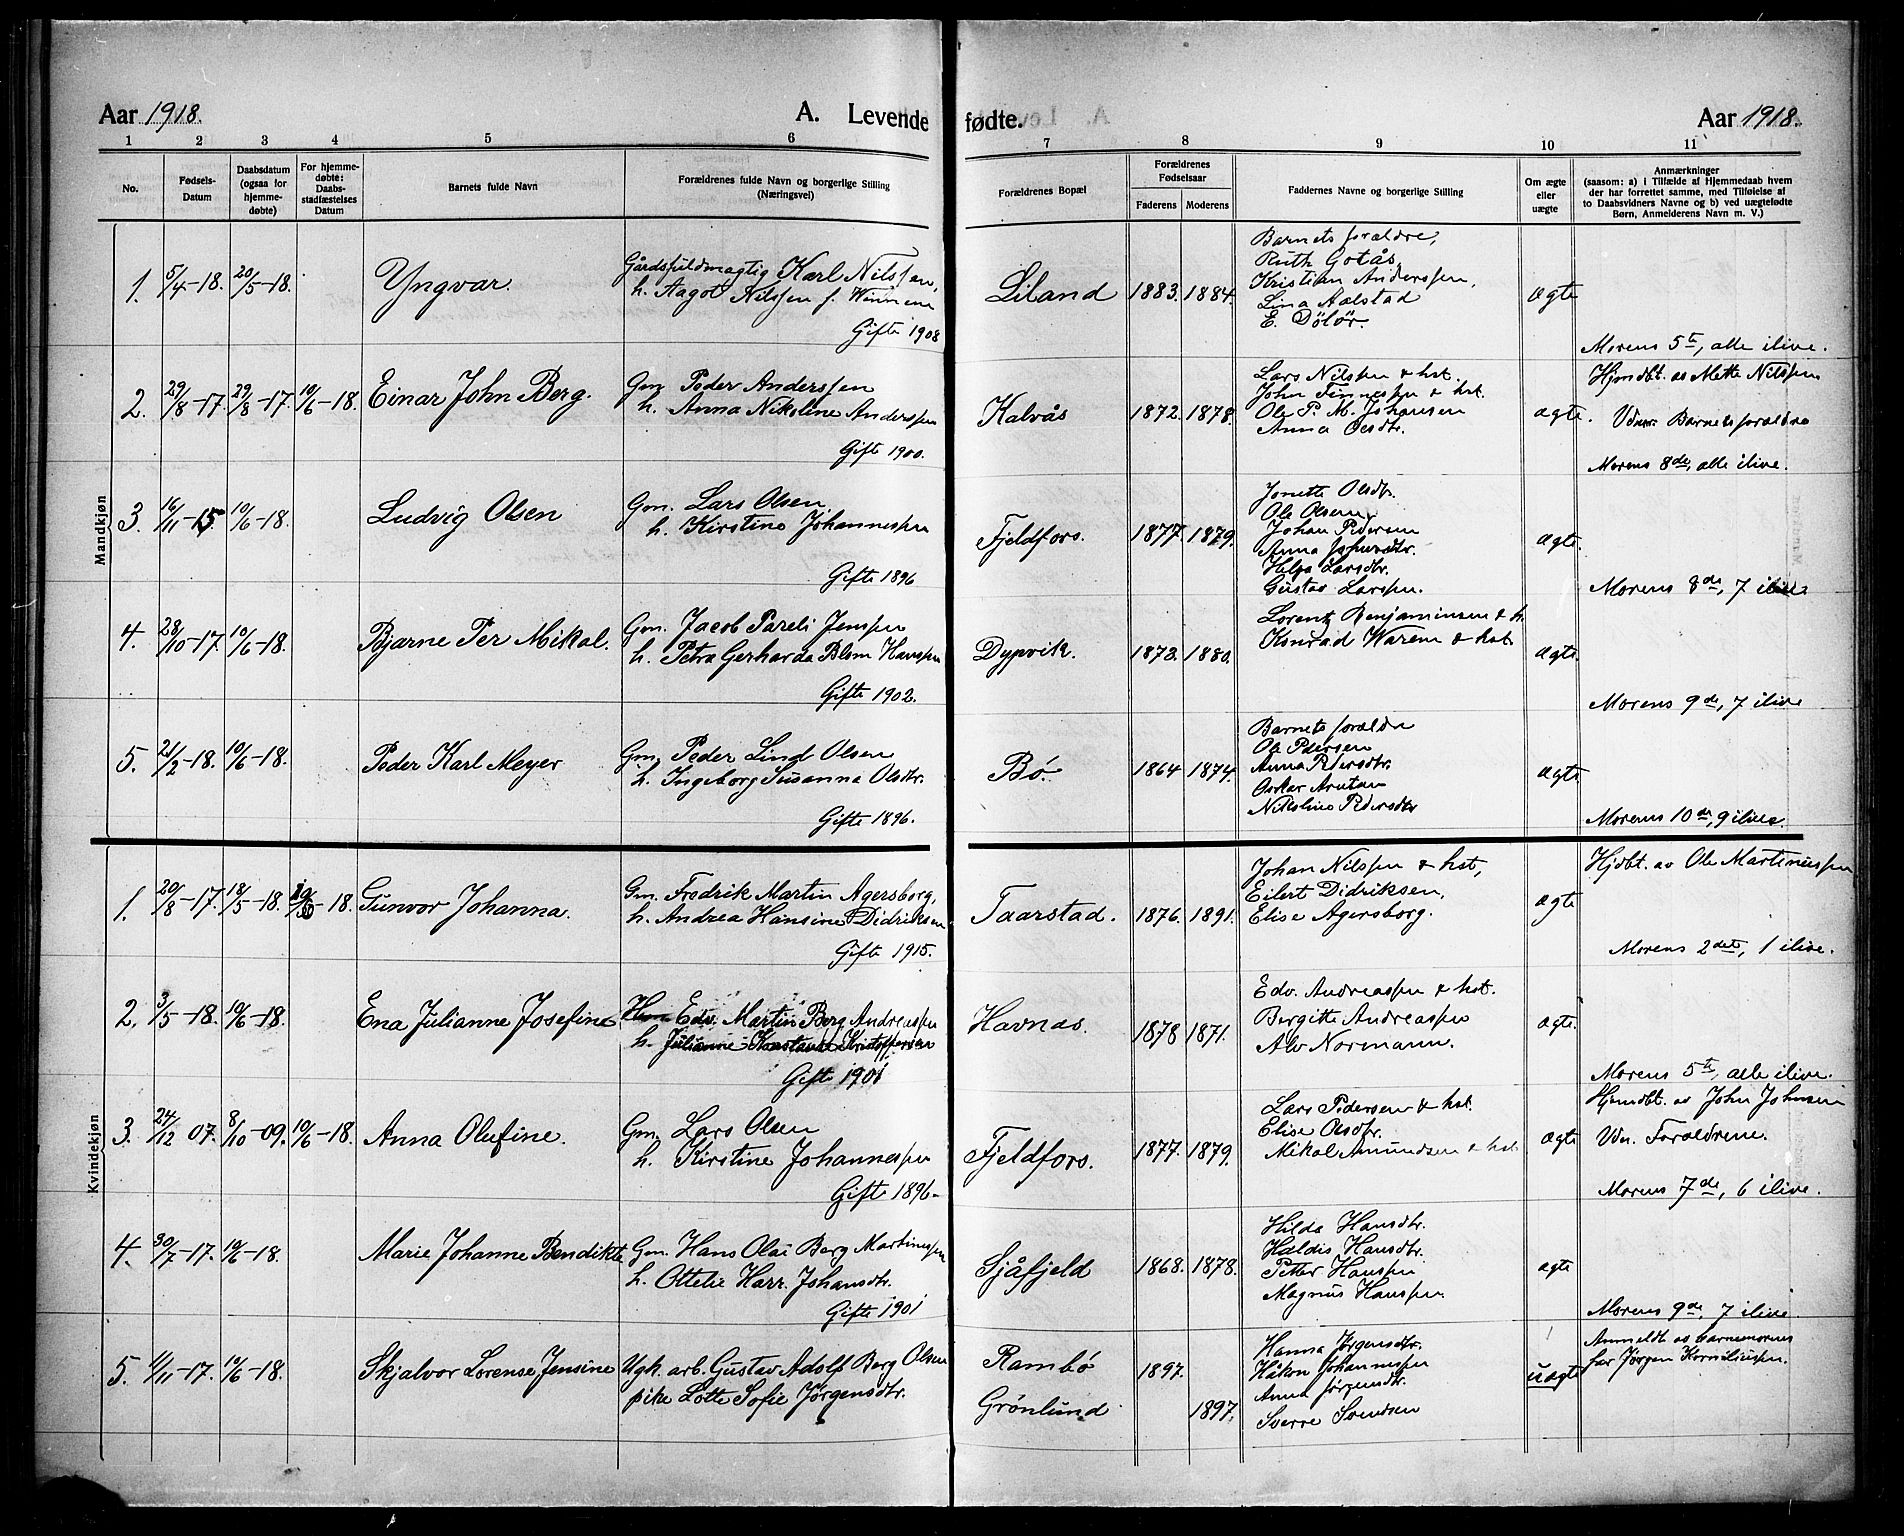 Aar 1918. A. Levende fødte. Aar 1918.
1 2 3 4 5 6 7 8 9 10 11
No. Fødsels-Datum Daabsdatum (ogsaa for hjemme-døbte) For hjemme-døbte: Daabs-stadfæstelses Datum Barnets fulde Navn Forældrenes fulde Navn og borgerlige Stilling (Næringsvei) Forældrenes Bopæl Forældrenes Fødselsaar Faderens Moderens Faddernes Navne og borgerlige Stilling Om ægte eller uægte Anmærkninger (saasom: a) i Tilfælde af Hjemmedaab hvem der har forrettet samme, med Tilføielse af to Daabsvidners Navne og b) ved uægtefødte Børn, Anmelderens Navn m. V.)
Mandkjøn
1. 5/4-18. 20/5-18. Yngvar. Gårdsfuldmægtig Karl Nilssen, h. Aagot Nilssen f. Winnem Gifte 1908
Liland 1883. 1884. Barnets forældre,
Ruth Gotås,
Kristian Anderssen,
Lina Aalstad
E. Dölör.
ægte
Morens 5te, alle ilive.
2. 29/8-17. 29/8-17. 10/6-18. Einar John Berg. Gm. Peder Anderssen
h. Anna Nikoline Anderssen
Gifte 1900.
Kalvås 1872. 1878. Lars Nilssen & hst.
John Finnessen & hst.
Ole P. M. Johansen
Anna Olsdtr.
ægte.
Hjmdbt. av Mette Nilssen
Vdner: Barnets forældre
Morens 8de, alle ilive.
3. 16/11-15 10/6-18. Ludvig Olsen Gm. Lars Olsen
h. Kirstine Johannessen
Gifte 1896
Fjeldfors. 1877. 1879. Jonette Olsdtr.
Ole Olsen,
Johan Pedersen
Anna
Helga Larsdtr.
Gustav Larssen.
ægte.
Morens 8de, 7 ilive
4. 28/10-17. 10/6-18. Bjarne Per Mikal. Gm. Jacob Pareli Jenssen
h. Petra Gerharda Blom Hanssen
Gifte 1902.
Dypvik. 1873. 1880. Lorentz Benjaminsen & h.
Konrad Warem & hst.
ægte.
Morens 9de, 7 ilive
5. 21/2-18. 10/6-18. Peder Karl Meyer Gm. Peder Lind Olsen
h. Ingeborg Susanna Olsdtr.
Gifte 1896.
Bö. 1864 1874. Barnets forældre
Ole Pedersen
Anna Pedersdtr.
Oskar Arntsen
Nikoline Pedersdtr
ægte
Morens 10de, 9 ilive.
Kvindekjøn
1. 20/8-17. 18/5-18. -18. Gunvor Johanna. Gm. Fredrik Martin Agersborg,
h. Andrea Hansine Didriksen
Gifte 1915.
Taarstad. 1876. 1891. Johan Nilssen & hst,
Eilert Didriksen,
Elise Agersborg.
ægte
Hjdbt. av Ole Martinussen
Morens 2det, 1 ilive.
2. 3/5-18. 10/6-18. Ena Julianne Josefine Edv. Martin Berg Andreassen
h. Julianne Konstanse Kristoffersen
Gifte 1901
Havnes. 1878 1871. Edv. Andreassen & hst.
Bergitte Andreassen
Alv Normann.
ægte.
Morens 5te, alle ilive.
3. 24/12 07. 8/10-09. 10/6-18. Anna Olufine. Gm. Lars Olsen
h. Kirstine Johannessen
Gifte 1896-
Fjeldfors. 1877. 1879. Lars Pedersen & hst.
Elise Olsdtr.
Mikal Amundsen & hst
ægte
Hjemdbt. av John Johnsen
Vdn. Forældrene.
Morens 7de, 6 ilive.
4. 30/7-17. 10/6-18. Marie Johanne Bendikte Gm. Hans Olai Berg Martinessen
h. Ottelie Harr. Johansdtr.
Gifte 1901
Sjåfjeld 1868. 1878. Hilda Hansdtr.
Haldis Hansdtr.
Petter Hanssen
Magnus Hanssen.
ægte
Morens 9de, 7 ilive.
5. 1/11-17. 10/6-18. Skjalvor Lorense Jensine Ugk. arb. Gustav Adolf Berg Olsen
pike Lotte Sofie Jörgensdtr.
Rambö 1897.
Grönlund 1897. Hanna Jörgensdtr.
Håkon Johannessen
Anna Jörgensdtr.
Sverre Svendsen
uægte
Anmeldt av barnemorens
far Jörgen Korneliussen.